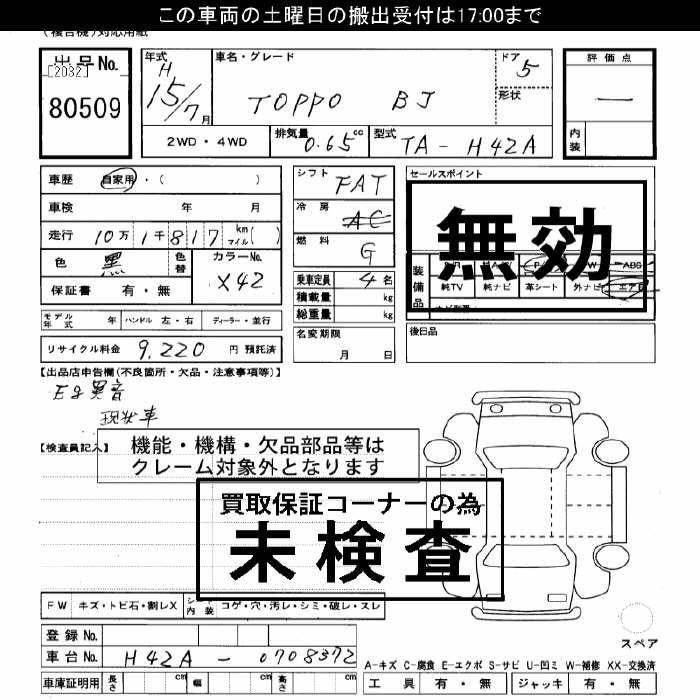 この車両の土曜日の搬出受付は17:00まで
(複合機)対応用紙
出品No.
[2032]
80509
年式 H 15/7 月
車名・グレード
TOPPO BJ
ドア 5
形状
評価点
—
内装
2WD・4WD
排気量 0.65 cc
型式 TA-H42A
車歴 自家用・( )
車検 年 月
走行 10万1千817 km マイル( )
色 黒
色替
カラーNo. X42
保証書 有・無
シフト FAT
冷房 AC
燃料 G
乗車定員 4名
積載量 kg
総重量 kg
セールスポイント
無効
装備品
ABS
純TV 純ナビ 革シート 外ナビ エアB
モデル年式 年 ハンドル 左・右 ディーラー・並行
名変期限
月 日
後日品
リサイクル料金 9,220 円 預託済
【出品店申告欄(不良箇所・欠品・注意事項等)】
Eg異音
現状車
【検査員記入】
機能・機構・欠品部品等は
クレーム対象外となります
買取保証コーナーの為
未検査
FW キズ・トビ石・割レX シート内装 コゲ・穴・汚レ・シミ・破レ・スレ
スペア
登録No.
車台No. H42A-0708372
A-キズ C-腐食 E-エクボ S-サビ U-凹ミ W-補修 XX-交換済
車庫証明用 長さ cm 幅 cm 高さ cm
工具 有・無 ジャッキ 有・無